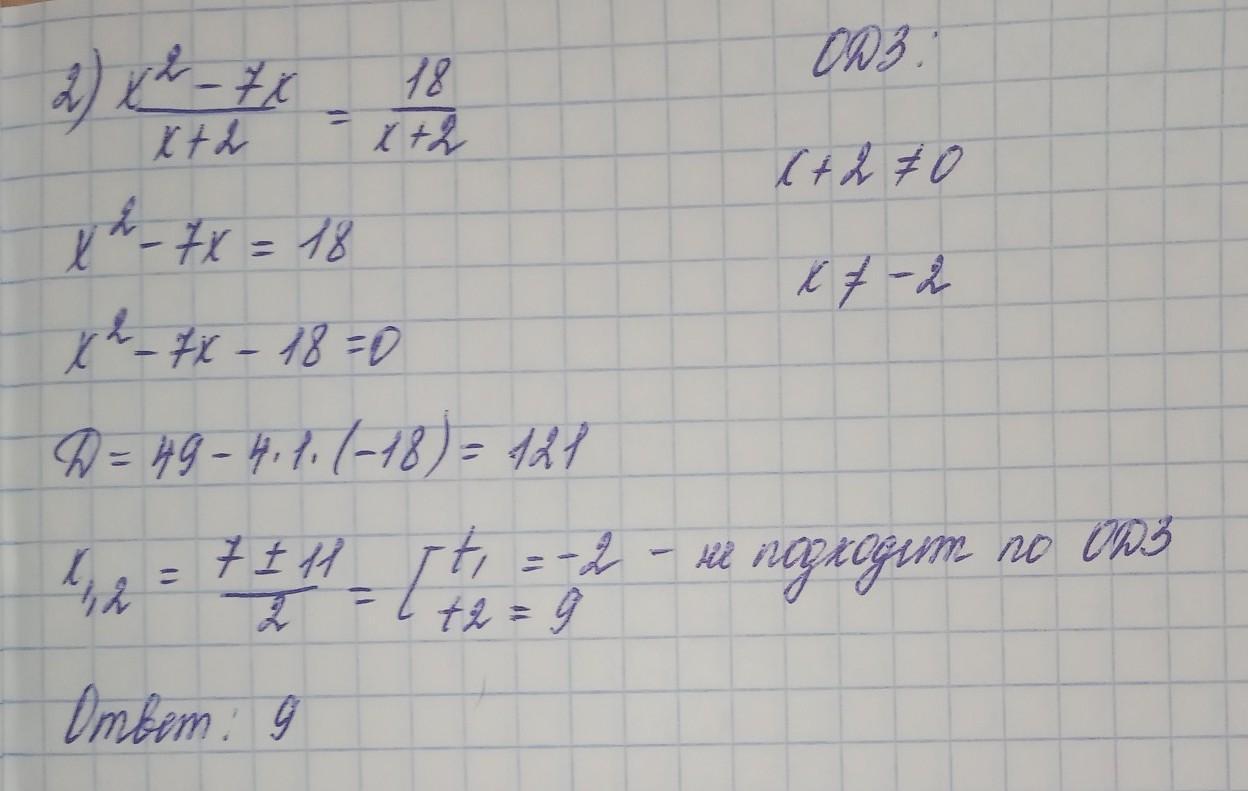 2) x² - 7x / x+2 = 18 / x+2
ОДЗ:
x+2 ≠ 0
x² - 7x = 18
x ≠ -2
x² - 7x - 18 = 0
D = 49 - 4·1·(-18) = 121
x₁,₂ = 7 ± 11 / 2 = [ t₁ = -2 - не подходит по ОДЗ
t2 = 9
Ответ: 9